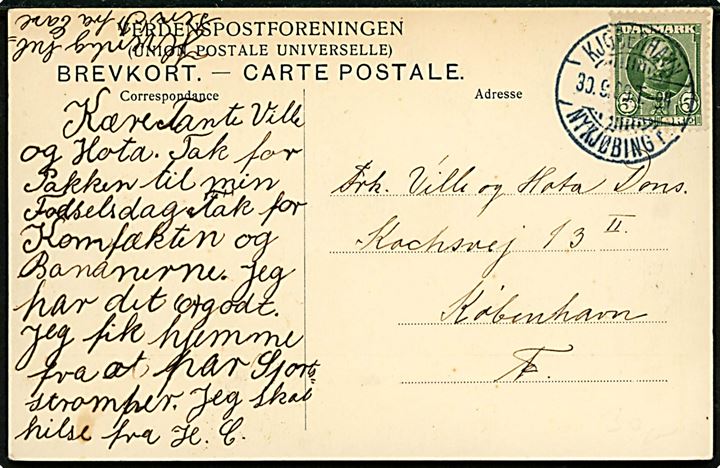 VERDENSPOSTFORENINGEN
(UNION POSTALE UNIVERSELLE)
BREVKORT. — CARTE POSTALE.
Correspondance
Adresse
Kære Tante Ville
og Hota. Tak for
Pakken til min
Fødselsdag. Tak for
Komfækten og
Bananerne. Jeg
har det
Jeg fik hjemme
fra et par Sjorts=
strømper. Jeg skal
hilse fra H. C.
fra
Frk. Ville og Hota Dons.
Kochsvej 13 II.
København
F.
DANMARK
5 5
KJØBENHAVN
30.9.
NYKJØBING F.